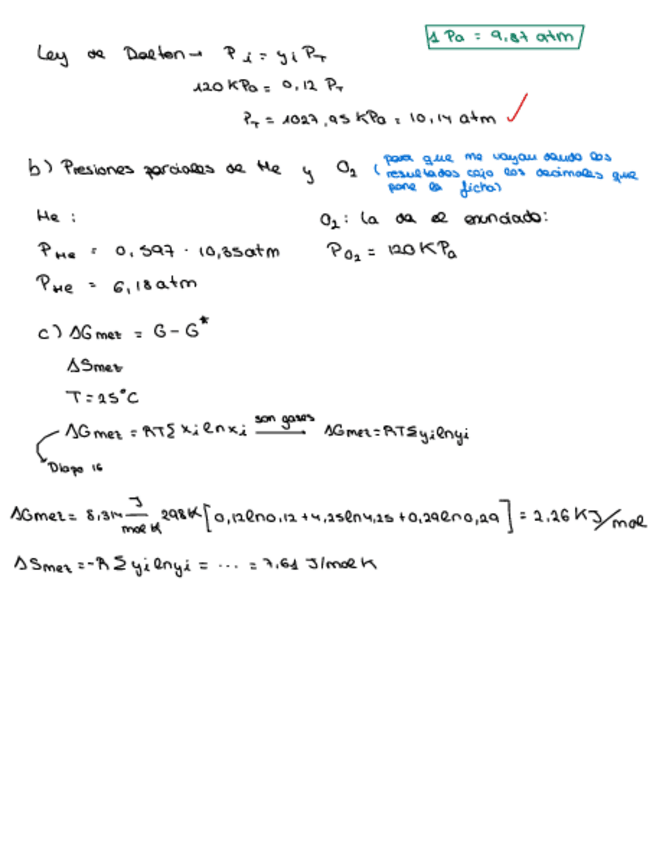 Ley de Dalton → P i = y i P_T
1 Pa = 9,87 atm
120 KPa = 0,12 P_T
P_T = 1027,95 KPa = 10,14 atm ✓
b) Presiones parciales de He y O₂ (para que me vayan dando los
resultados cojo los decimales que
pone la ficha)
He :
P_He = 0,597 · 10,35 atm
P_He = 6,18 atm
O₂ : la da el enunciado:
P_O₂ = 120 KPa
c) ΔG mez = G - G*
ΔS mez
T = 25°C
ΔG mez = RT Σ x i ln x i son gases → ΔG mez = RT Σ y i ln y i
Diapo 16
ΔG mez = 8,314 J/mol K 298 K [0,12 ln 0,12 + 4,25 ln 4,25 + 0,29 ln 0,29] = 2,26 KJ/mol
ΔS mez = -R Σ y i ln y i = ... = 7,61 J/mol K